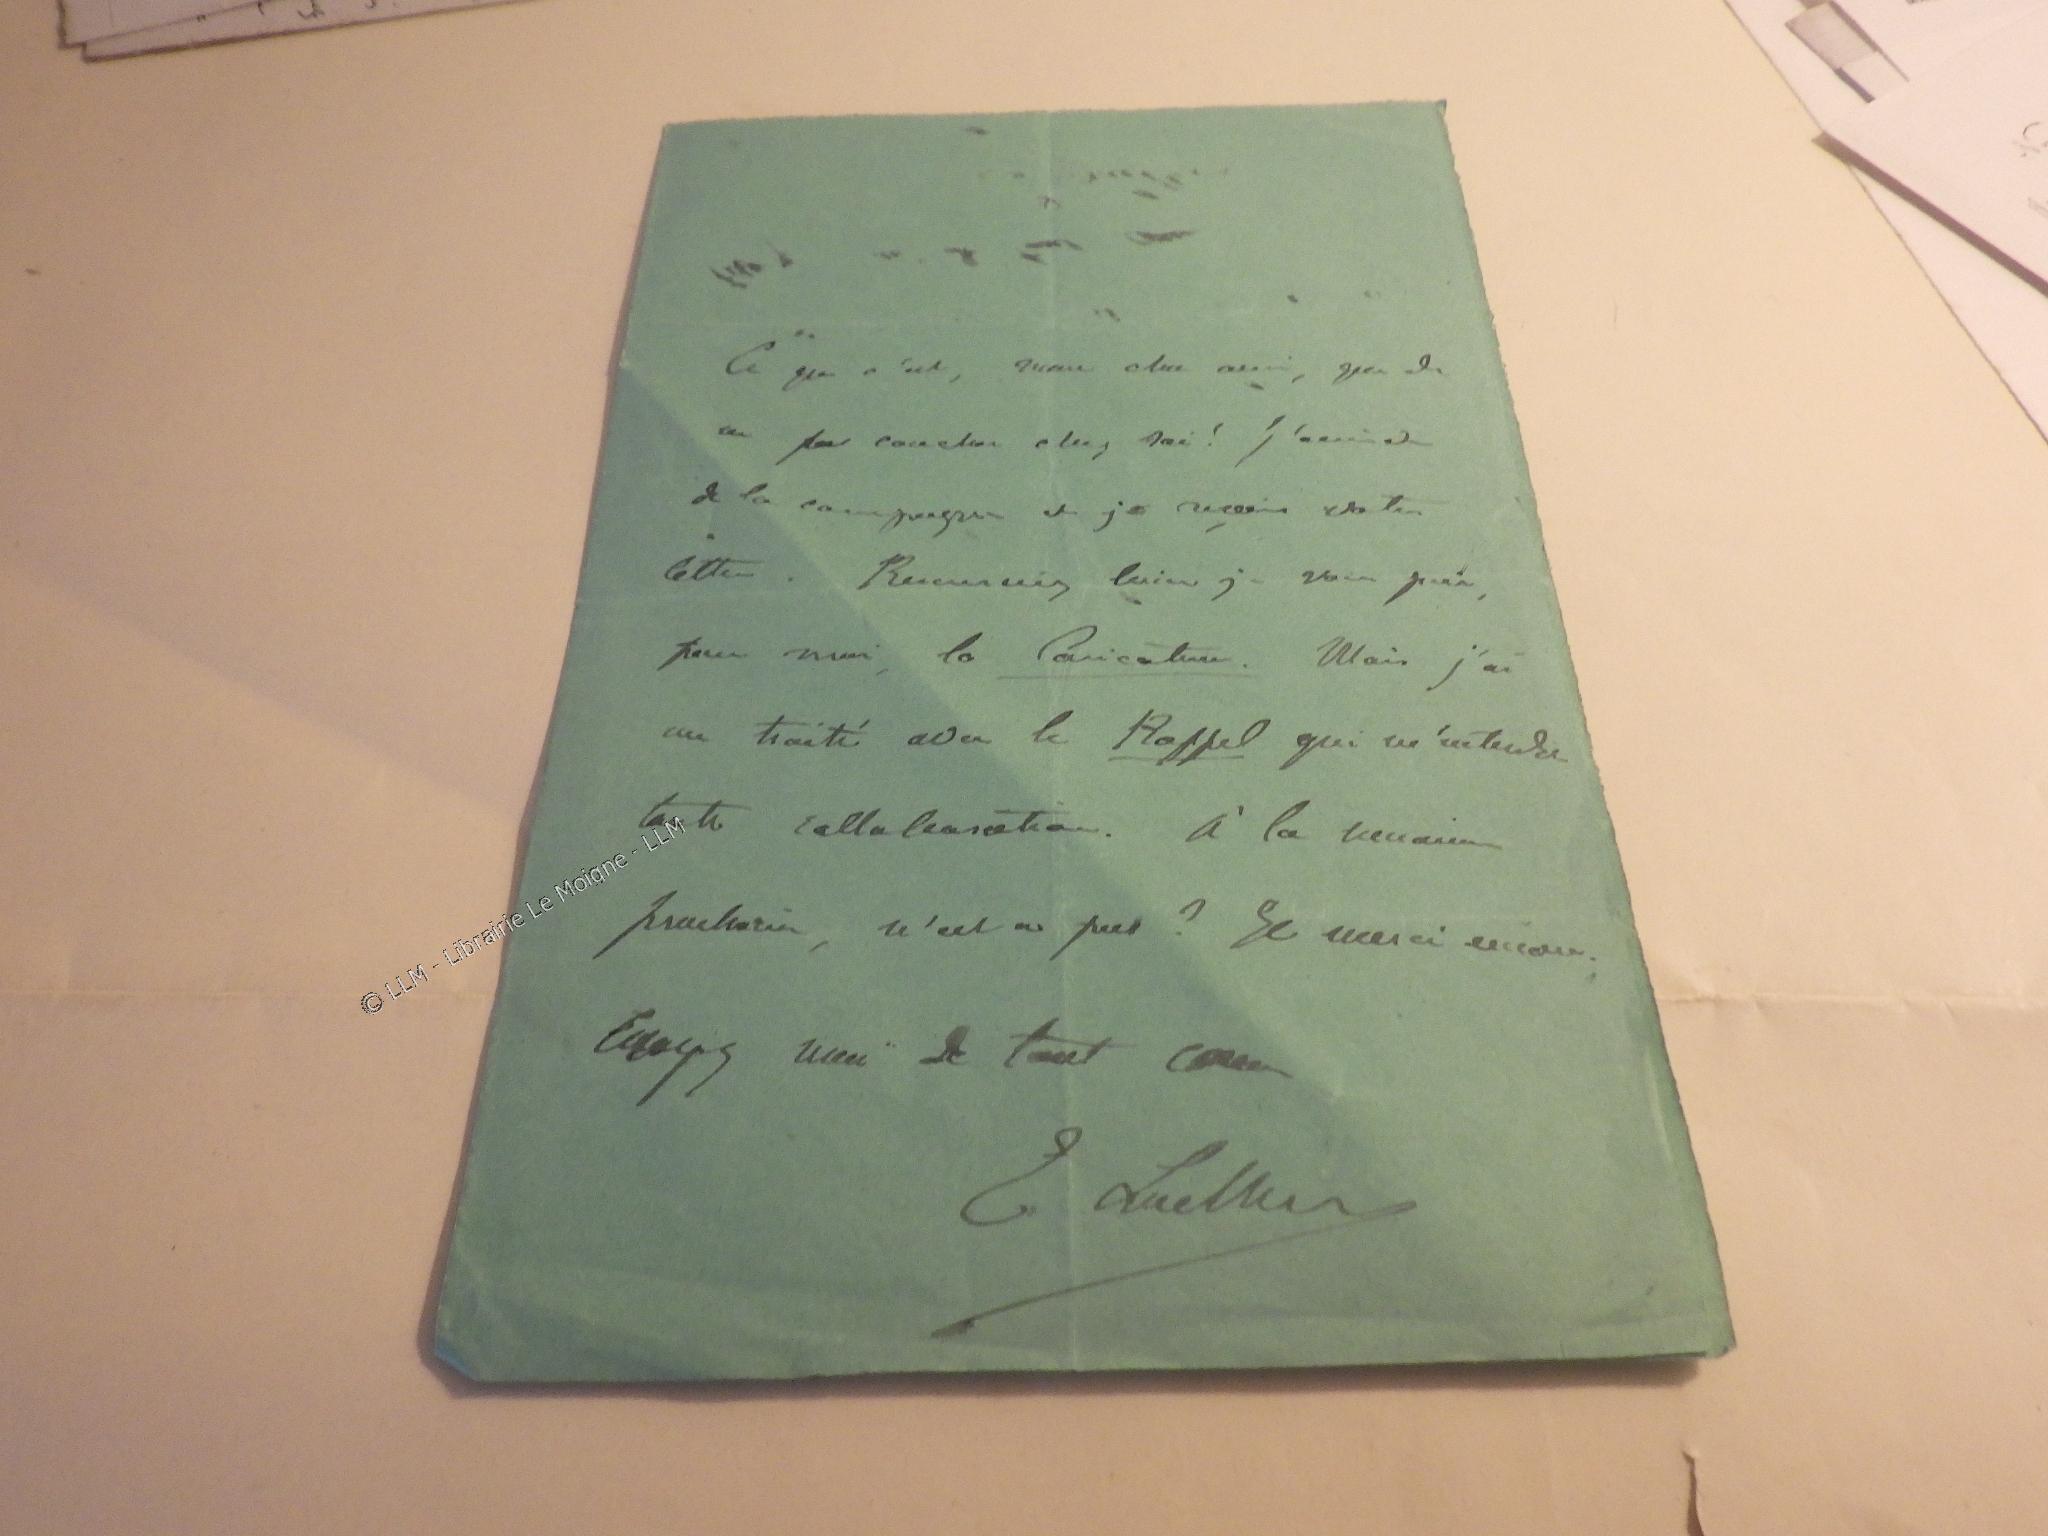 Ce que c'est, mon cher ami, que de
ne pas coucher chez soi! J'arrive
de la campagne et je reçois votre
lettre. Remerciez bien je vous prie,
pour moi, la Caricature. Mais j'ai
un traité avec le Rappel qui m'interdit
toute collaboration. À la semaine
prochaine, n'est ce pas? Et merci encore.
Croyez moi de tout coeur
E
© LLM - Librairie Le Moigne - LLM